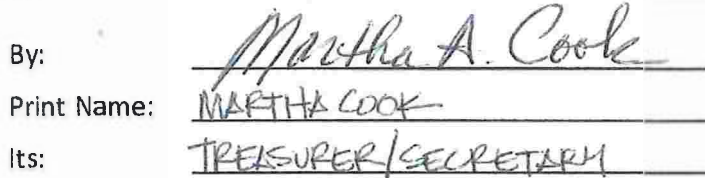 By: Martha A. Cook
Print Name: MARTHA COOK
Its: TREASURER/SECRETARY